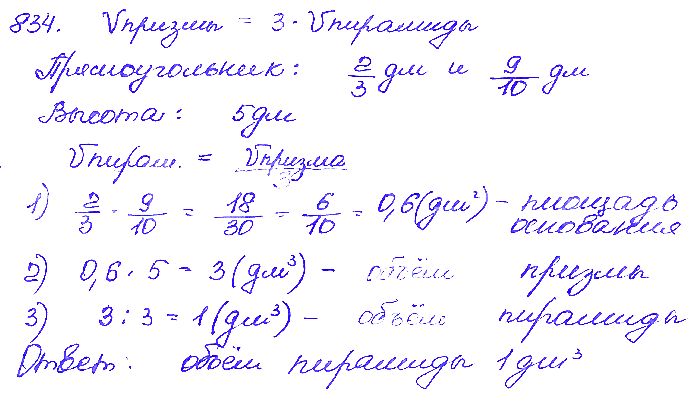 834. Vпризмы = 3 · Vпирамиды
Прямоугольник: 2/3 дм и 9/10 дм
Высота: 5дм
Vпирам. = Vпризма/3
1) 2/3 · 9/10 = 18/30 = 6/10 = 0,6 (дм²) – площадь основания
2) 0,6 · 5 = 3 (дм³) – объём призмы
3) 3 : 3 = 1 (дм³) – объём пирамиды
Ответ: объём пирамиды 1дм³